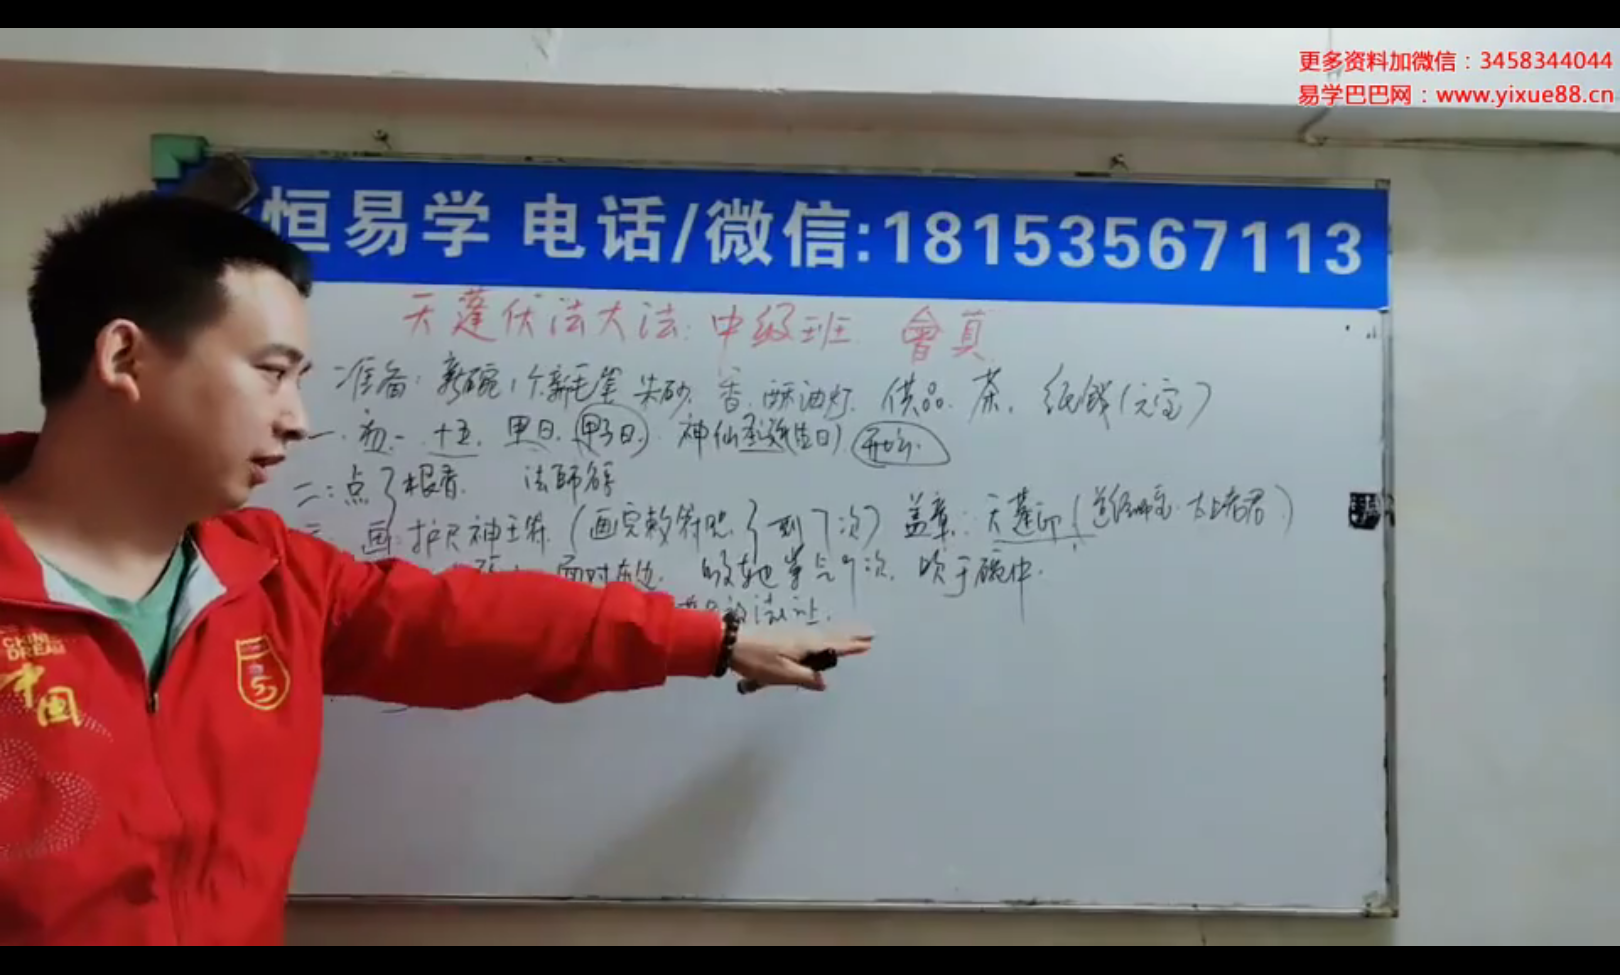 更多资料加微信：3458344044
易学巴巴网：www.yixue88.cn
恒易学 电话/微信:18153567113
天蓬伏法大法: 中级班 會真
准备: 新碗1个 新毛笔 朱砂. 香. 酥油灯. 供品. 茶. 纸钱(元宝)
一. 初一. 十五. 甲日. (甲子日). 神仙圣诞(生日)
二: 点3根香. 法师容
画: 护尺神王符. (画完敕符咒3到7次) 盖章: 天蓬印 (道经师宝. 太上老君)
面对东边. 吸东地炁 9次. 吹于碗中.
CHINESE DREAM
中国